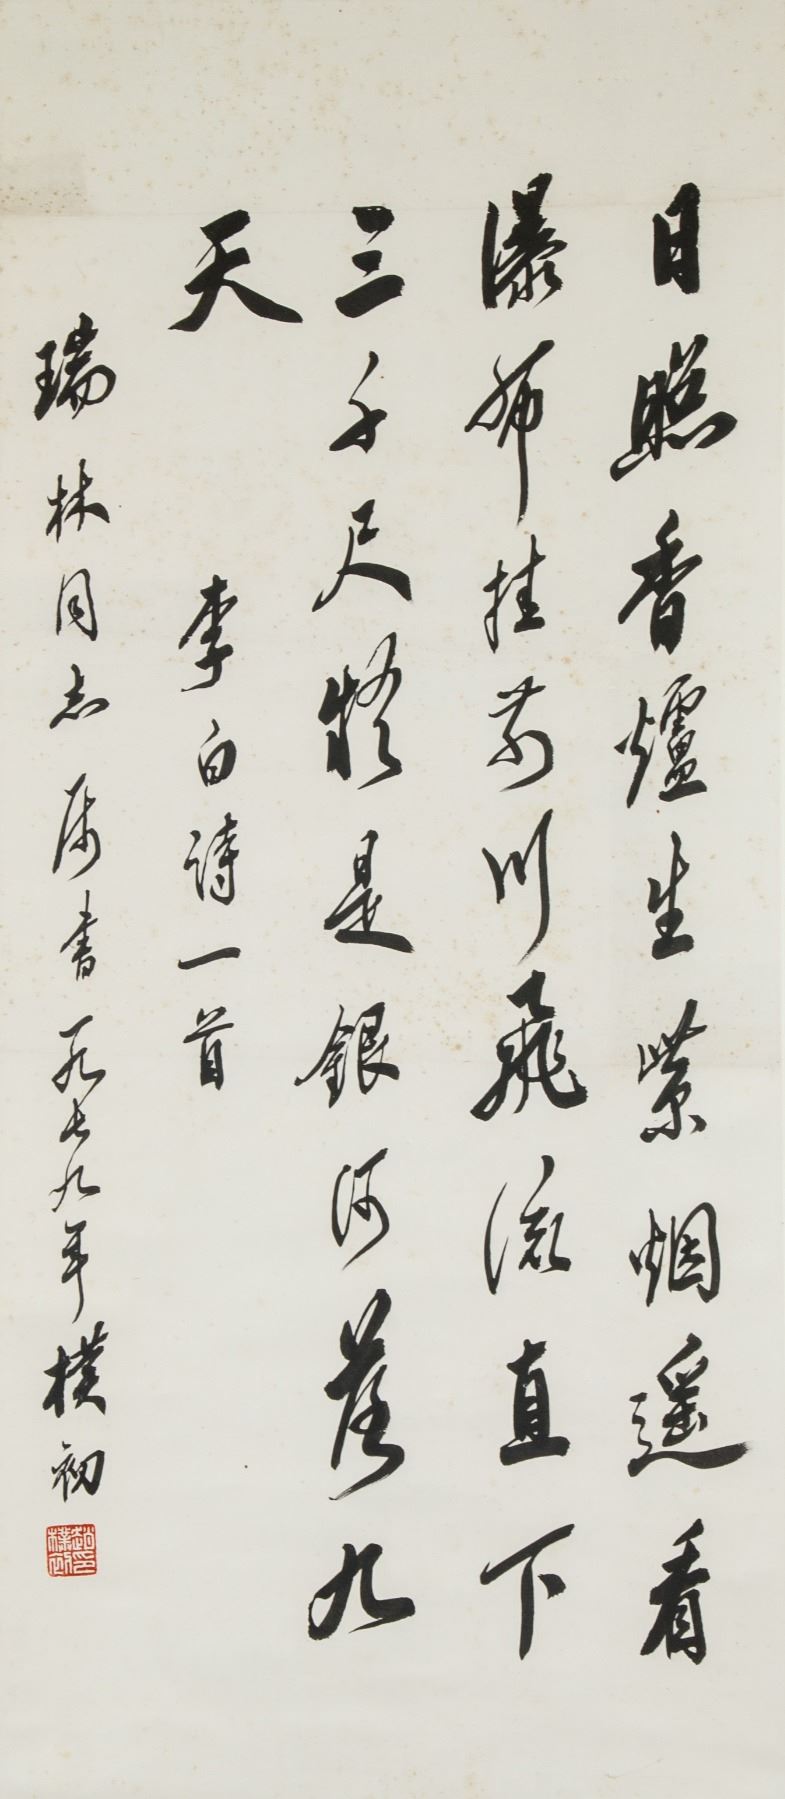 日照香爐生紫烟遥看
瀑布挂前川飛流直下
三千尺疑是銀河落九
天
李白詩一首
瑞林同志属書一九七九年樸初
趙樸初印